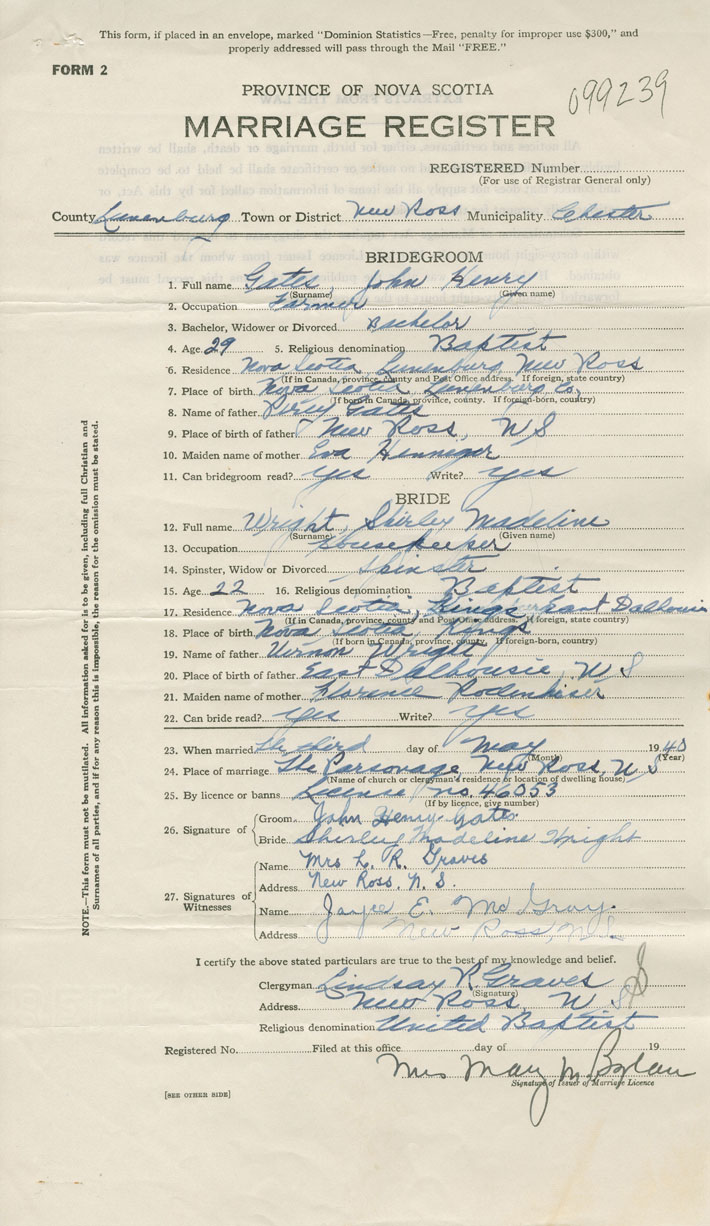 This form, if placed in an envelope, marked "Dominion Statistics—Free, penalty for improper use $300," and
properly addressed will pass through the Mail "FREE."
FORM 2
PROVINCE OF NOVA SCOTIA
099239
MARRIAGE REGISTER
REGISTERED Number
(For use of Registrar General only)
County Lunenbourg Town or District New Ross Municipality Chester
BRIDEGROOM
1. Full name Gates, John Henry
(Surname) (Given name)
2. Occupation Farmer
3. Bachelor, Widower or Divorced Bachelor
4. Age 29 5. Religious denomination Baptist
6. Residence Nova Scotia, Lunenburg, New Ross
(If in Canada, province, county and Post Office address. If foreign, state country)
7. Place of birth Nova Scotia, Lunenburg Co.
(If born in Canada, province, county. If foreign-born, country)
8. Name of father Percy Gates
9. Place of birth of father New Ross, N S
10. Maiden name of mother Eva Henneger
11. Can bridegroom read? yes Write? yes
BRIDE
12. Full name Wright, Shirley Madeline
(Surname) (Given name)
13. Occupation Housekeeper
14. Spinster, Widow or Divorced Spinster
15. Age 22 16. Religious denomination Baptist
17. Residence Nova Scotia, Kings East Dalhousie
(If in Canada, province, county and Post Office address. If foreign, state country)
18. Place of birth Nova Scotia, Kings
(If born in Canada, province, county. If foreign-born, country)
19. Name of father Vernon Wright
20. Place of birth of father East Dalhousie, N S
21. Maiden name of mother Florence Rodenhiser
22. Can bride read? yes Write? yes
23. When married the third day of May 1940
(Month) (Year)
24. Place of marriage The Parsonage, New Ross, N S
(Name of church or clergyman's residence or location of dwelling house)
25. By licence or banns License no. 46053
(If by licence, give number)
26. Signature of
Groom John Henry Gates
Bride Shirley Madeline Wright
27. Signatures of Witnesses
Name Mrs L. R. Graves
Address New Ross, N. S.
Name Joyce E. McGray.
Address New Ross, N.S.
I certify the above stated particulars are true to the best of my knowledge and belief.
Clergyman Lindsay R. Graves
(Signature)
Address New Ross, N S
Religious denomination United Baptist
Registered No. Filed at this office day of 19
Mrs May M
Signature of Issuer of Marriage Licence
[SEE OTHER SIDE]
NOTE.—This form must not be mutilated. All information asked for is to be given, including full Christian and
Surnames of all parties, and if for any reason this is impossible, the reason for the omission must be stated.